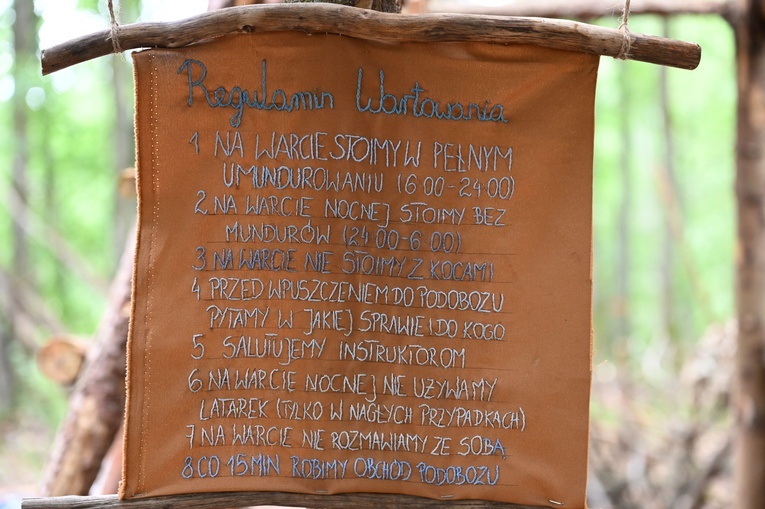 Regulamin Wartowania
1 NA WARCIE STOIMY W PEŁNYM
UMUNDUROWANIU (6:00-24:00)
2 NA WARCIE NOCNEJ STOIMY BEZ
MUNDURÓW (24:00-6:00)
3 NA WARCIE NIE STOIMY Z KOCAMI
4 PRZED WPUSZCZENIEM DO PODOBOZU
PYTAMY W JAKIEJ SPRAWIE I DO KOGO
5 SALUTUJEMY INSTRUKTOROM
6 NA WARCIE NOCNEJ NIE UŻYWAMY
LATAREK (TYLKO W NAGŁYCH PRZYPADKACH)
7 NA WARCIE NIE ROZMAWIAMY ZE SOBĄ
8 CO 15 MIN ROBIMY OBCHÓD PODOBOZU